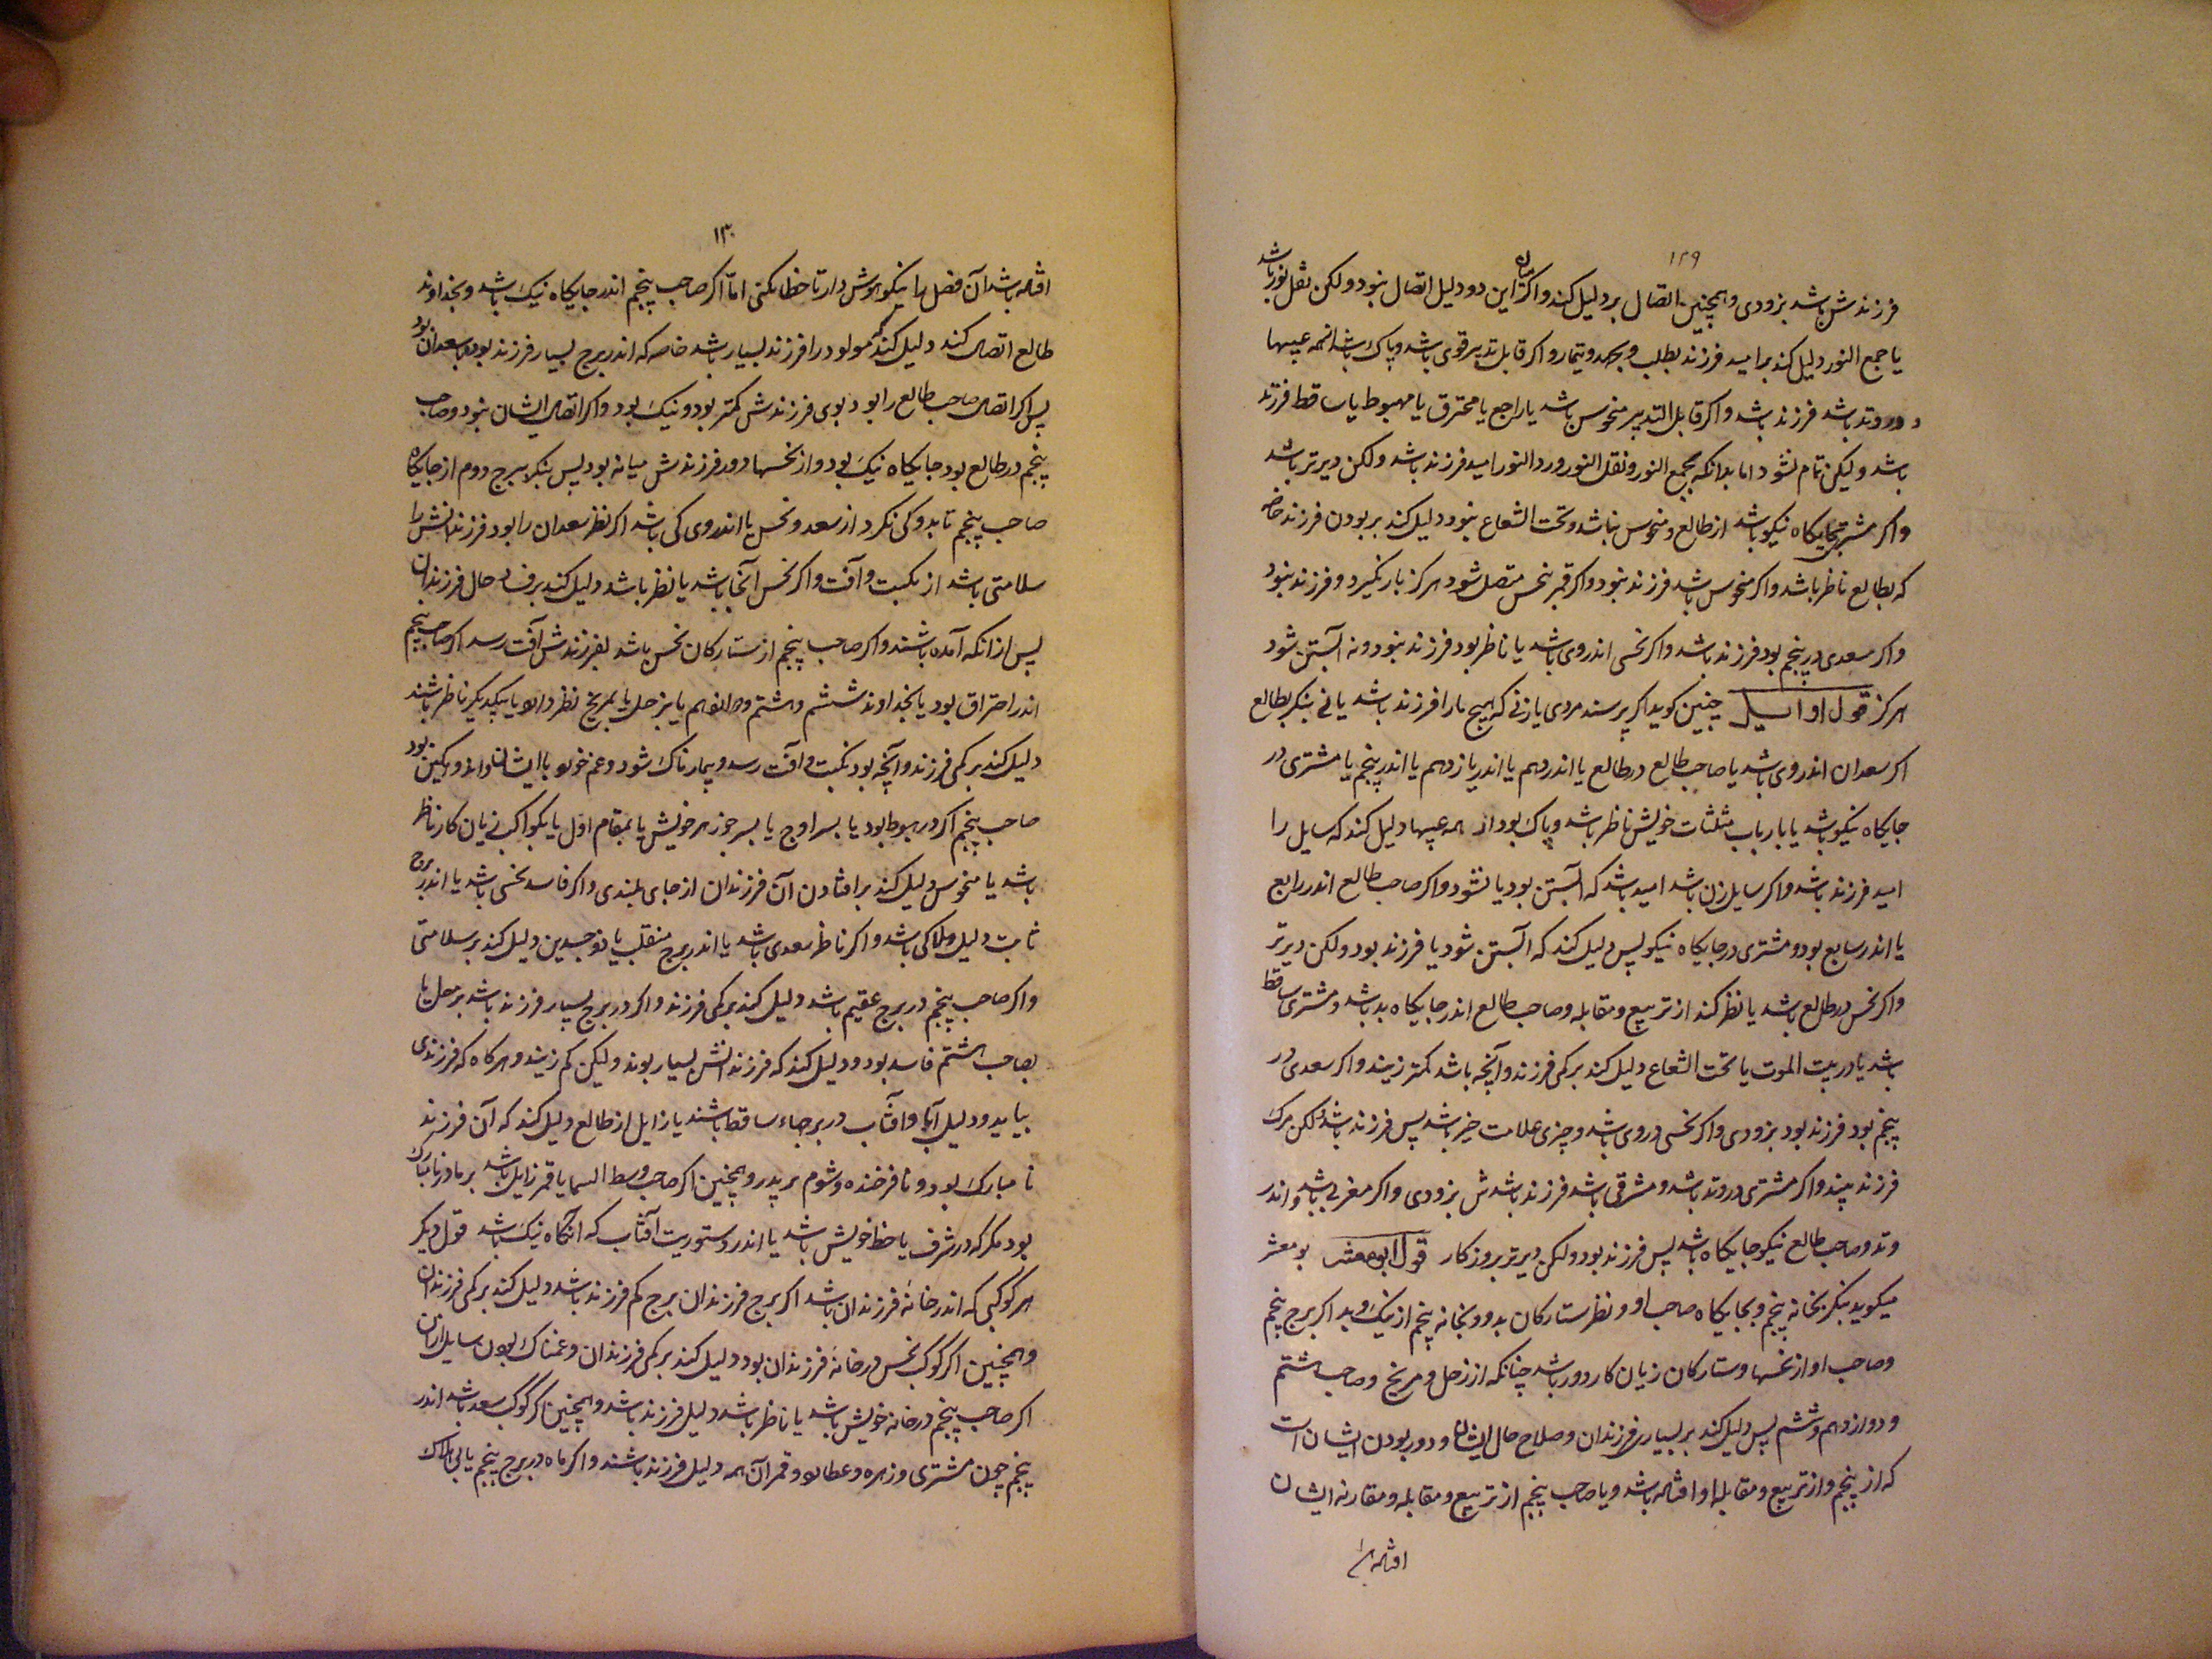 ۱۲۹
فرزندش باشد بزودی و همچنین اتصال بر دلیل کند و اکر میان این دو دلیل اتصال نبود ولکن نقل نور باشد
یا جمع النور دلیل کند بر امید فرزند بطلب و بجهد و تیمار و اکر قابل تدبیر قوی باشد و پاک باشد از همه عیبها
و در وتد باشد فرزند باشد و اکر قابل التدبیر منحوس باشد یا راجع یا محترق یا مهبوط یا ساقط فرزند
باشد ولیکن تمام نشود اما بدانکه بجمع النور و نقل النور و رد النور امید فرزند باشد ولکن دیرتر باشد
و اکر مشتری بجایکاه نیکو باشد از طالع و منحوس نباشد و تحت الشعاع نبود دلیل کند بر بودن فرزند خاصه
که بطالع ناظر باشد و اکر منحوس باشد فرزند نبود و اکر قمر بنحس متصل شود هرکز بار نکیرد و فرزند نبود
و اکر سعدی در پنجم بود فرزند باشد و اکر نحسی اندر وی باشد یا ناظر بود فرزند نبود و نه آبستن شود
هرکز قول اوایل چنین کوید اکر پرسند مردی یا زنی که هیچ مارا فرزند باشد یا نی بنکر بطالع
اکر سعدان اندر وی باشد یا صاحب طالع در طالع یا اندر دهم یا اندر یازدهم یا اندر پنجم یا مشتری در
جایکاه نیکو باشد یا بارباب مثلثات خویش ناظر باشد و پاک بود از همه عیبها دلیل کند که سایل را
امید فرزند باشد و اکر سایل زن باشد امید باشد که آبستن بود یا نشود و اکر صاحب طالع اندر رابع
یا اندر سابع بود و مشتری در جایکاه نیکو پس دلیل کند که آبستن شود یا فرزند بود ولکن دیرتر
و اکر نحس در طالع باشد یا نظر کند از تربیع و مقابله و صاحب طالع اندر جایکاه بد باشد و مشتری ساقط
باشد یا در بیت الموت یا تحت الشعاع دلیل کند بر کمی فرزند و آنچه باشد کمتر زیند و اکر سعدی در
پنجم بود فرزند بود بزودی و اکر نحسی در وی باشد و چیزی علامت خیر باشد پس فرزند باشد ولکن مرک
فرزند بیند و اکر مشتری در وتد باشد و مشرقی باشد فرزند باشدش بزودی و اکر مغربی باشد و اندر
وتد و صاحب طالع نیکو جایکاه باشد پس فرزند بود ولکن دیرتر بروزکار قول ابو معشر بو معشر
میکوید بنکر بخانه پنجم و بجایکاه صاحب او و نظر ستارکان بدو و بخانه پنجم از نیک و بد اکر برج پنجم
و صاحب او از نحسها و ستارکان زیان کار دور باشد چنانکه از زحل و مریخ و صاحب هشتم
و دوازدهم و ششم پس دلیل کند بر بسیاری فرزندان و صلاح حال ایشان و دور بودن ایشان است
که از پنجم و از تربیع و مقابله او افتاده باشد و یا صاحب پنجم از تربیع و مقابله و مقارنه ایشان
افتاده باشد
۱۳۰
افتاده باشد آن فصل را نیکو هوش دار تا خطا نکنی اما اکر صاحب پنجم اندر جایکاه نیک باشد و بخداوند
طالع اتصال کند دلیل کند که مولود را فرزند بسیار باشد خاصه که اندر برج بسیار فرزند بود و با سعدان بود
پس اکر اتصال صاحب طالع را بود بوی فرزندش کمتر بود و نیک بود و اکر اتصال ایشان نبود و صاحب
پنجم در طالع بود جایکاه نیک بود و از نحسها دور فرزندش میانه بود پس بنکر ببرج دوم از جایکاه
صاحب پنجم تا بدو کی نکرد از سعد و نحس یا اندر وی کی باشد اکر نظر سعدان را بود فرزندانش را
سلامتی باشد از نکبت و آفت و اکر نحس آنجا باشد یا نظر باشد دلیل کند بر فساد حال فرزندان
پس از انکه آمده باشند و اکر صاحب پنجم از ستارکان نحس باشد بفرزندش آفت رسد اکر صاحب پنجم
اندر احتراق بود یا بخداوند ششم و هشتم و دوازدهم یا بزحل یا بمریخ نظر دارد یا بیکدیکر ناظر باشند
دلیل کند بر کمی فرزند و آنچه بود نکبت و آفت رسد و بیمارناک شود و غم خورد با ایشان و اندوهکین بود
صاحب پنجم اکر در هبوط بود یا بسر اوج یا بسر جوزهر خویش یا بمقام اول یا بکواکب زیان کار ناظر
باشد یا منحوس دلیل کند بر افتادن آن فرزندان از جای بلندی و اکر فاسد نحسی باشد یا اندر برج
ثابت دلیل هلاکی باشد و اکر ناظر سعدی باشد یا اندر برج منقلب یا ذو جسدین دلیل کند بر سلامتی
و اکر صاحب پنجم در برج عقیم باشد دلیل کند بر کمی فرزند و اکر در برج بسیار فرزند باشد بزحل یا
بصاحب هشتم فاسد بود و دلیل کند که فرزندانش بسیار بوند ولیکن کم زیند و هرکاه که فرزندی
بیاید و دلیل آبا و آفتاب در برجهاء ساقط باشند یا زایل از طالع دلیل کند که آن فرزند
نا مبارک بود و نا فرخنده و شوم بر پدر و همچنین اکر صاحب وسط السما یا قمر زایل باشد بر مادر نا مبارک
بود مکر که در شرف یا حظ خویش باشد یا اندر دستوریت آفتاب که آنکاه نیک باشد قول دیکر
هر کوکبی که اندر خانه فرزندان باشد اکر برج فرزندان برج کم فرزند باشد دلیل کند بر کمی فرزندان
و همچنین اکر کوکب نحس در خانه فرزندان بود دلیل کند بر کمی فرزندان و غمناک بودن سایل از ان
اکر صاحب پنجم در خانه خویش باشد یا ناظر باشد دلیل فرزند باشد و همچنین اکر کوکب سعد باشد اندر
پنجم چون مشتری و زهره و عطارد و قمر آن همه دلیل فرزند باشند و اکر ماه در برج پنجم یا بی